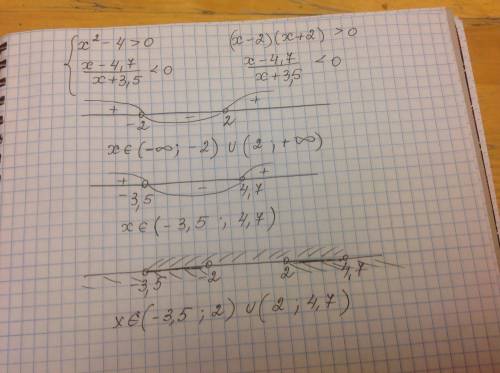 { x² - 4 > 0    (x-2)(x+2) > 0
x-4,7 / x+3,5 < 0    x-4,7 / x+3,5 < 0
+ - +
-2 2
x ∈ (-∞; -2) ∪ (2; +∞)
+ - +
-3,5 4,7
x ∈ (-3,5; 4,7)
-3,5 -2 2 4,7
x ∈ (-3,5; 2) ∪ (2; 4,7)